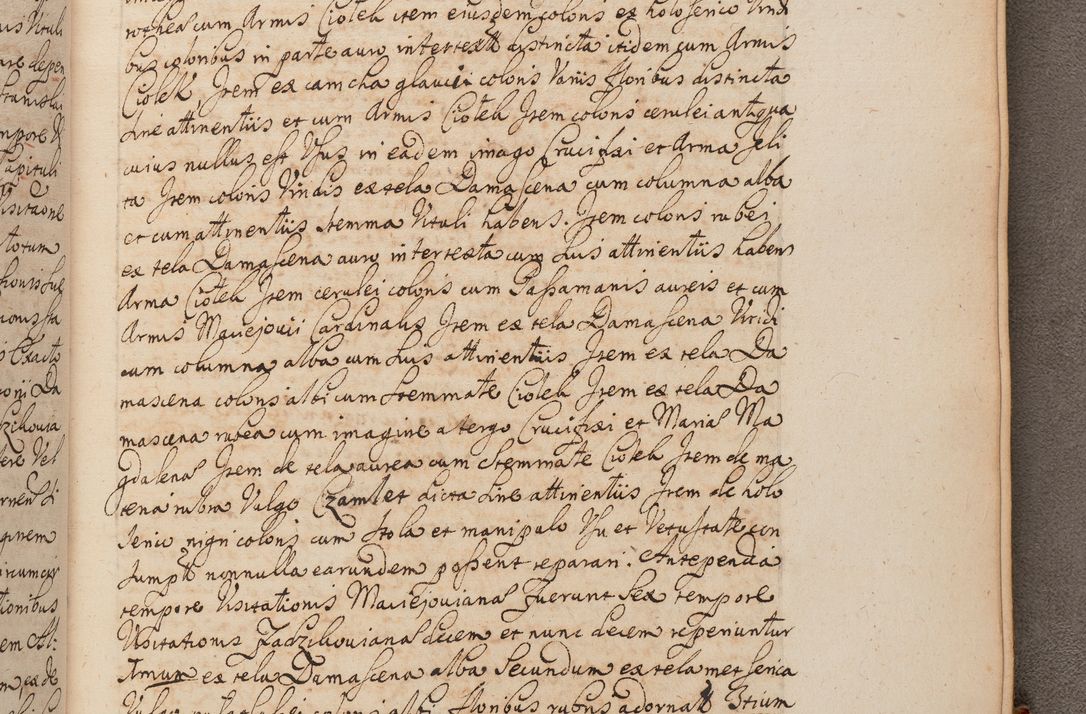 rothea cum Armis Ciołek item eiusdem coloris ex holoserico Viridi
bus coloribus in parte auro intertextis distincta itidem cum Armis
Ciołek, Item ex camcha glauci coloris Variis floribus distincta
sine attinentiis et cum Armis Ciołek Item coloris cerulei antiqua
cuius nullus est Usus in eadem imago Crucifixi et Arma Jeli
ta Item coloris Viridis ex tela Damascena cum columna alba
et cum attinentiis stemma Vituli habens. Item coloris rubei
ex tela Damascena auro intertexta cum suis attinentiis habens
Arma Ciołek Item cerulei coloris cum Passamanis aureis et cum
Armis Maciejovii Cardinalis Item ex tela Damascena Viridi
cum columna alba cum suis attinentiis, Item ex tela Da
mascena coloris albi cum stemmate Ciołek Item ex tela Da
mascena rubea cum imagine a tergo Crucifixi et Mariæ Ma
gdalenæ Item de tela aurea cum stemmate Ciołek Item de ma
teria rubra Vulgo Czamlet dicta sine attinentiis Item de holo
serico nigri coloris cum stola et manipulo Usu et Vetustate con
sumptis nonnulla earundem possent reparari. Antependia
tempore Visitationis Maciejovianæ fuerunt sex tempore
Visitationis Zadzikovianæ decem et nunc decem reperiuntur
Imum ex tela Damascena alba secundum ex tela met serica
coloris albi floribus rubris adornatis 3tium